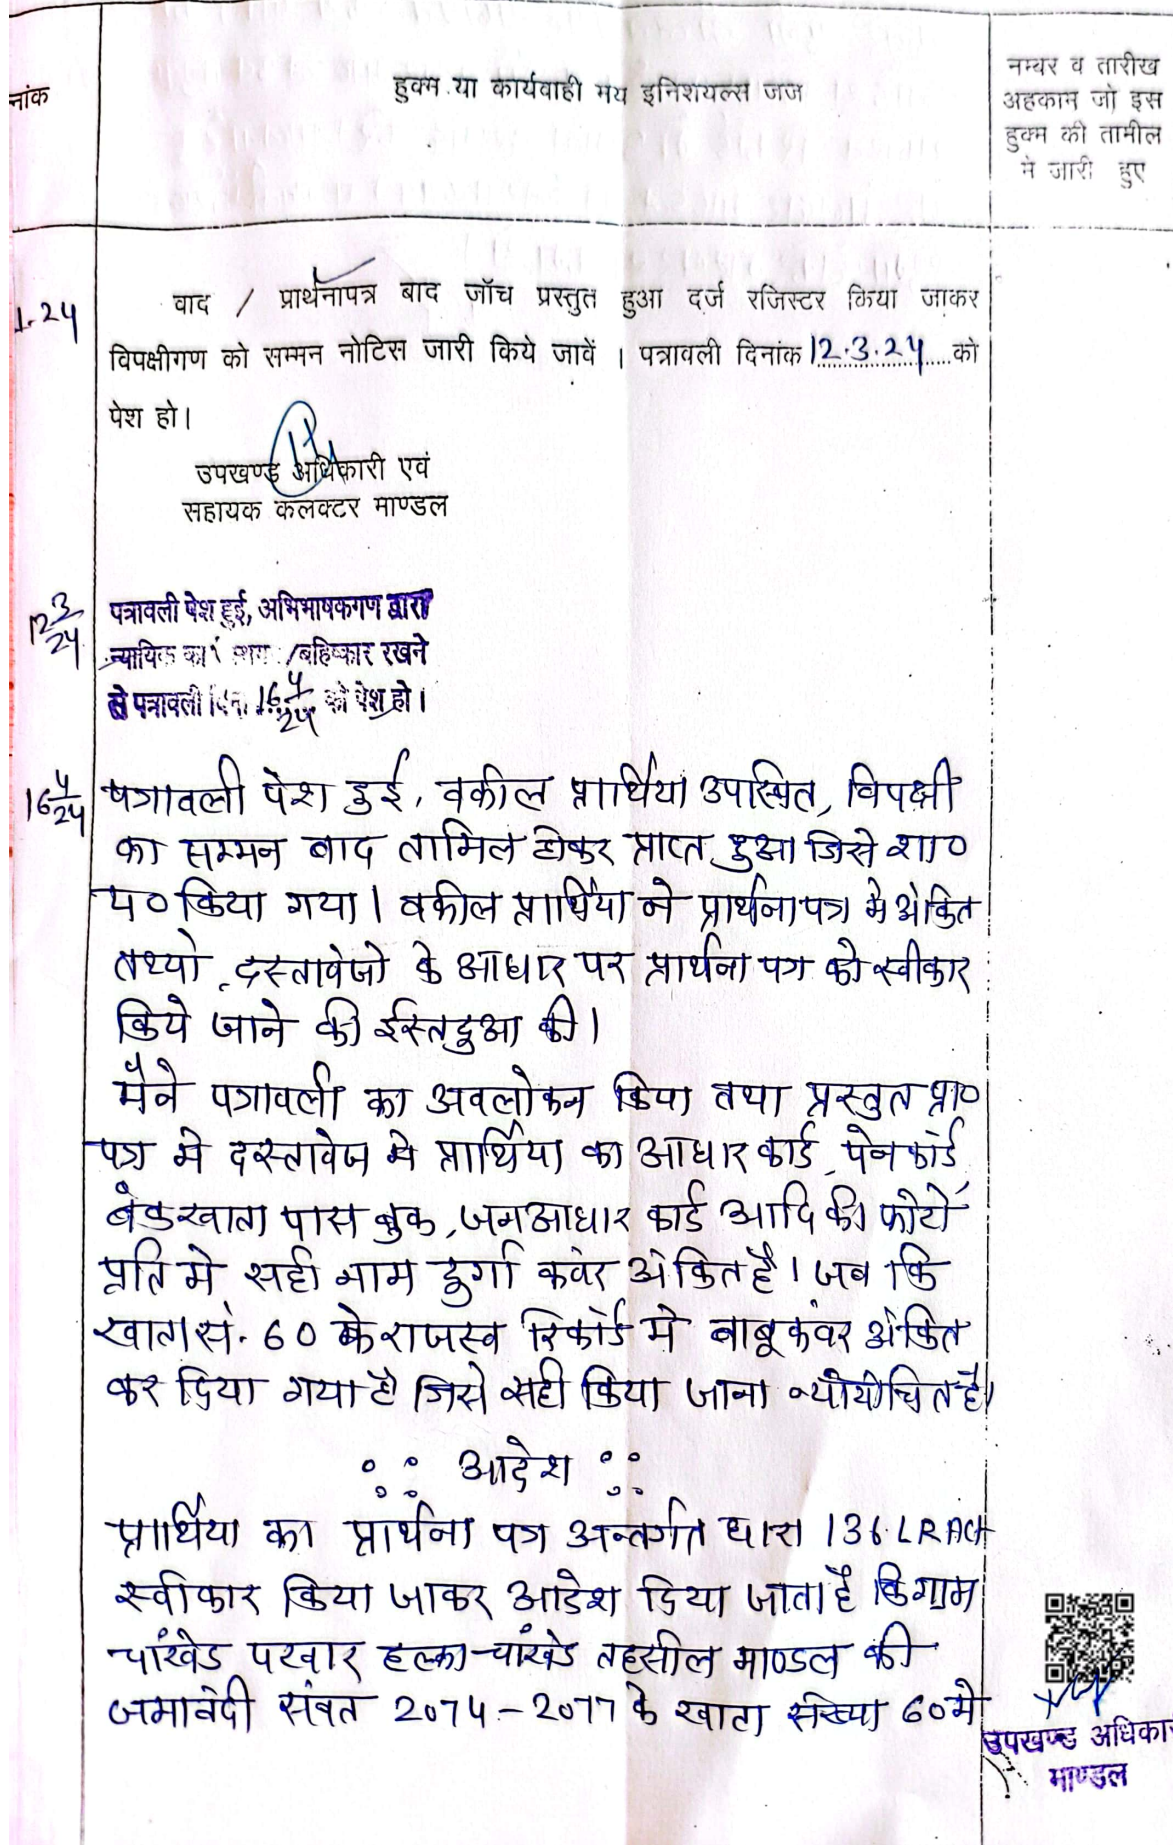 नांक
हुक्म या कार्यवाही मय इनिशयल्स जज
नम्बर व तारीख
अहकाम जो इस
हुक्म की तामील
मे जारी हुए
1.24
वाद / प्रार्थनापत्र बाद जॉच प्रस्तुत हुआ दर्ज रजिस्टर किया जाकर
विपक्षीगण को सम्मन नोटिस जारी किये जावें । पत्रावली दिनांक 12.3.24 को
पेश हो।
उपखण्ड अधिकारी एवं
सहायक कलक्टर माण्डल
12 3/24
पत्रावली पेश हुई, अभिभाषकगण द्वारा
न्यायिक का /बहिष्कार रखने
से पत्रावली 16 4/24 को पेश हो।
16 4/24
पत्रावली पेश हुई, वकील प्रार्थिया उपस्थित, विपक्षी
का सम्मन बाद तामिल होकर प्राप्त हुआ जिसे शा०
प० किया गया। वकील प्रार्थिया ने प्रार्थना पत्र मे अंकित
तथ्यो, दस्तावेजो के आधार पर प्रार्थना पत्र को स्वीकार
किये जाने की ईस्तदुआ की।
मैने पत्रावली का अवलोकन किया तथा प्रस्तुत प्रा०
पत्र मे दस्तावेज मे प्रार्थिया का आधार कार्ड, पेनकार्ड,
बेंकखाता पास बुक, जनआधार कार्ड आदि की फोटो
प्रति मे सही नाम दुर्गा कवंर अंकित है। जब कि
खाता सं. 60 के राजस्व रिकॉर्ड मे बाबू कंवर अंकित
कर दिया गया है जिसे सही किया जाना न्यायोचित है।
आदेश
प्रार्थिया का प्रार्थना पत्र अन्तर्गत धारा 136 LR ACt
स्वीकार किया जाकर आदेश दिया जाता है कि ग्राम
चांखेड पटवार हल्का चांखेड तहसील माण्डल की
जमाबंदी संवत 2074-2077 के खाता संख्या 60 मे
उपखण्ड अधिकार
माण्डल